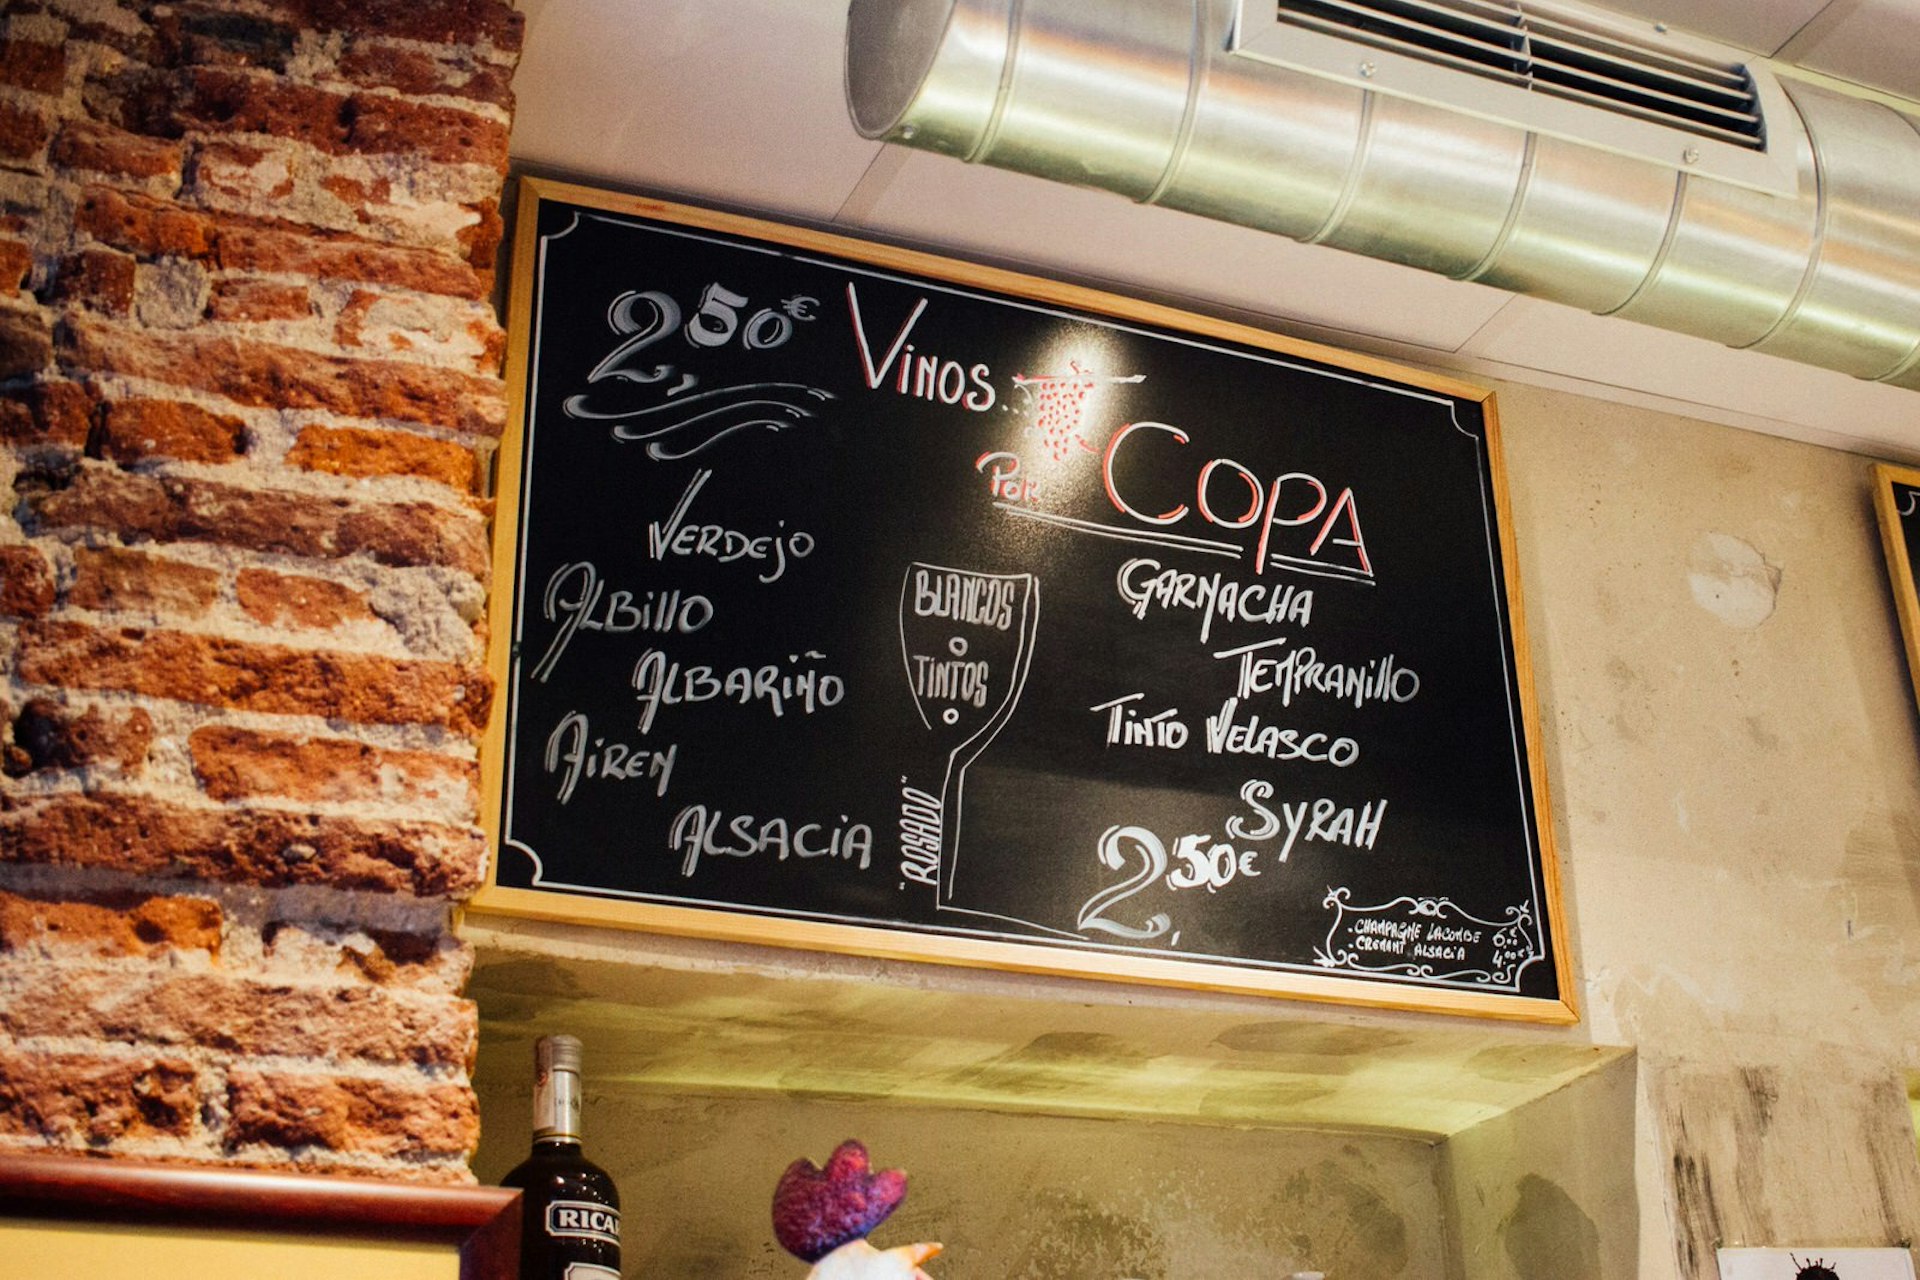 2,50€
Vinos...
Por
COPA
VERDEJO
ALBillO
ALBARIÑO
AIREN
ALSACIA
BLANCOS
o
TINTOS
o
"ROSADO"
GARNACHA
TEMPRANillO
TINTO VELASCO
SYRAH
2,50€
-CHAMPAGNE LACOMBE 6.00€
-CREMANT ALSACIA 4.00€
RICA